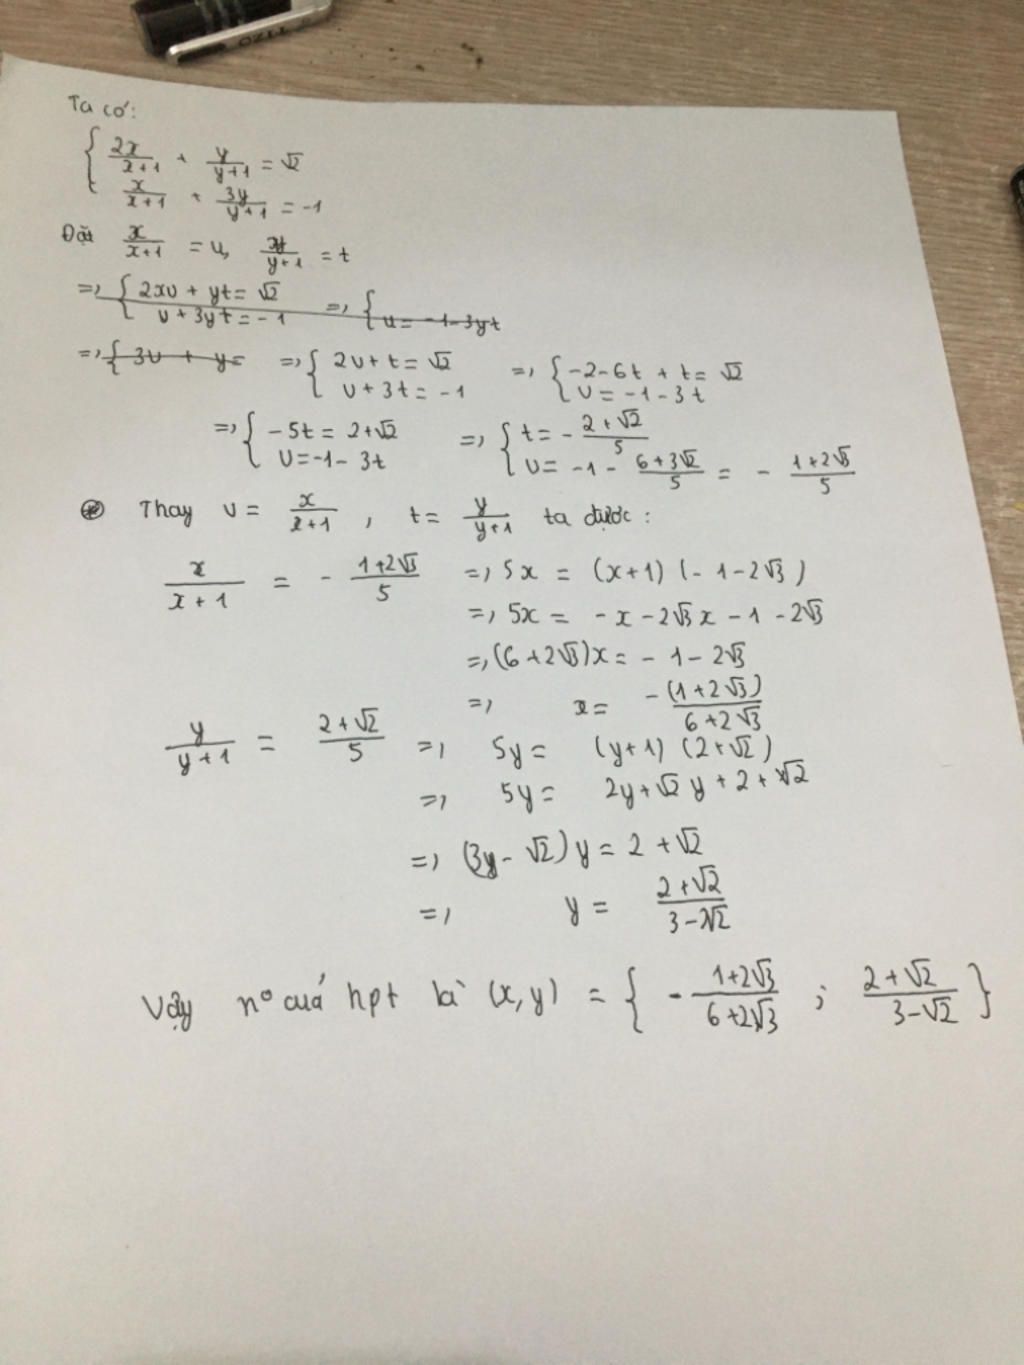 1720
Ta có:
{ 2x/(x+1) + y/(y+1) = √2
{ x/(x+1) + 3y/(y+1) = -1
Đặt x/(x+1) = u, y/(y+1) = t
=> { 2xu + yt = √2
u + 3yt = -1 => { u = -1-3yt
=> { 3u + y = => { 2u + t = √2 => { -2-6t + t = √2
u + 3t = -1 u = -1-3t
=> { -5t = 2+√2 => { t = - (2+√2)/5
u = -1-3t u = -1 - (6+3√2)/5 = - (1+2√3)/5
⊛ Thay u = x/(x+1), t = y/(y+1) ta được:
x/(x+1) = - (1+2√3)/5 => 5x = (x+1)(-1-2√3)
=> 5x = -x-2√3x-1-2√3
=> (6+2√3)x = -1-2√3
=> x = -(1+2√3)/(6+2√3)
y/(y+1) = (2+√2)/5 => 5y = (y+1)(2+√2)
=> 5y = 2y+√2y+2+√2
=> (3y-√2)y = 2+√2
=> y = (2+√2)/(3-√2)
Vậy nº cuả hpt là (x,y) = { - (1+2√3)/(6+2√3) ; (2+√2)/(3-√2) }